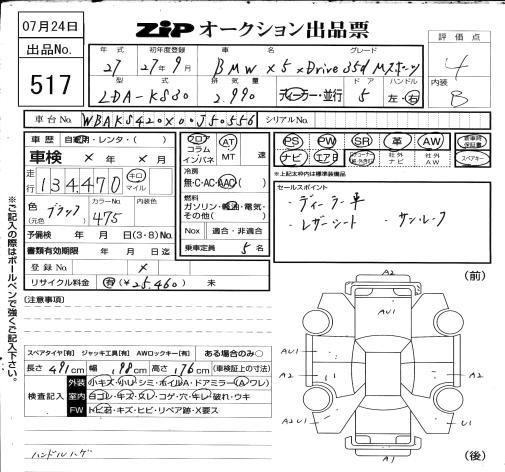 07月24日
ZiP オークション出品票
出品No.
517
年式 初年度登録 車名 グレード
27 27年9月 BMW X5 xDrive 35d Mスポーツ
型式 排気量 ドア ハンドル
LDA-KS30 2.990 ディーラー・並行 5 左・右
評価点
4
内装
B
車台No. WBAKS420X00J50556 シリアルNo.
車歴 自家用・レンタ・( )
車検 × 年 × 月 × 日
走行 134.470 キロ マイル
色(元色) ブラック カラーNo. 475 内装色
予備検 年 月 日(3・8)No.
書類有効期限 年 月 日迄
登録No. ×
リサイクル料金 有(¥25.460) 未
フロア コラム インパネ AT MT 速
冷房 無・C・AC・AAC( )
燃料
ガソリン・軽油・電気・その他( )
Nox 適合・非適合
乗車定員 5 名
PS PW SR 革 AW 新車時保証書
ナビ エアB 社外ナビ 社外AW スペアキー
※上記太枠内は標準装備品
セールスポイント
・ディーラー車
・レザーシート ・サンルーフ
※ご記入の際はボールペンで強くご記入下さい。
(注意事項)
スペアタイヤ[有] ジャッキ工具[有] AWロックキー[有] ある場合のみ○
長さ 491cm 幅 198cm 高さ 176cm (車検証上の寸法)
検査記入
外装 小キズ・小U・シミ・ホイルA・ドアミラー(A・ワレ)
室内 ヨゴレ・キズ・スレ・コゲ・穴・キレ・破れ・ウキ
FW トビ石・キズ・ヒビ・リペア跡・X要ス
ハンドルハゲ
(前)
A2
AU1
AU1
A2
A2
A2U1
U1
A1
(後)